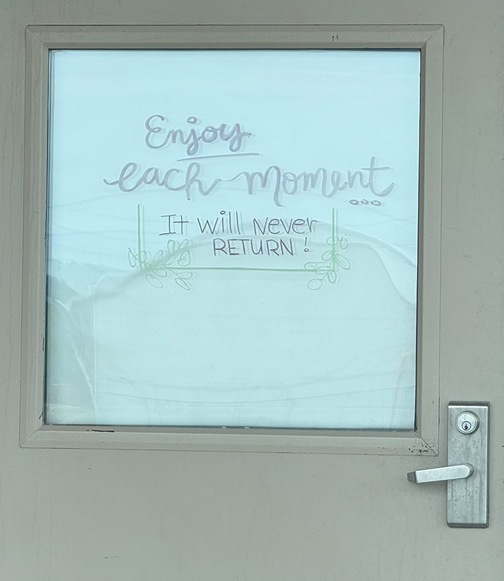 Enjoy
each moment...
It will never
RETURN!